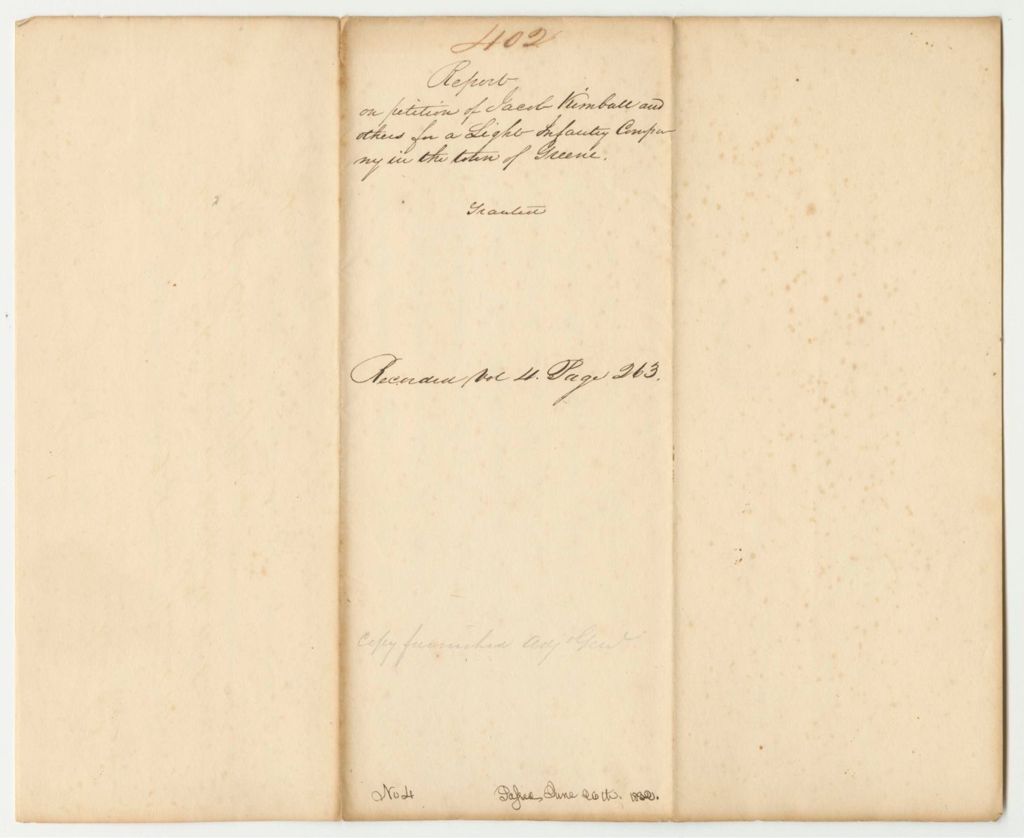 402
Report
on petition of Jacob Kimball and
others for a Light Infantry Compa
ny in the town of Greene.
Granted
Recorded Vol 4. Page 263.
copy furnished Adj Genl
No 4
June 26th.